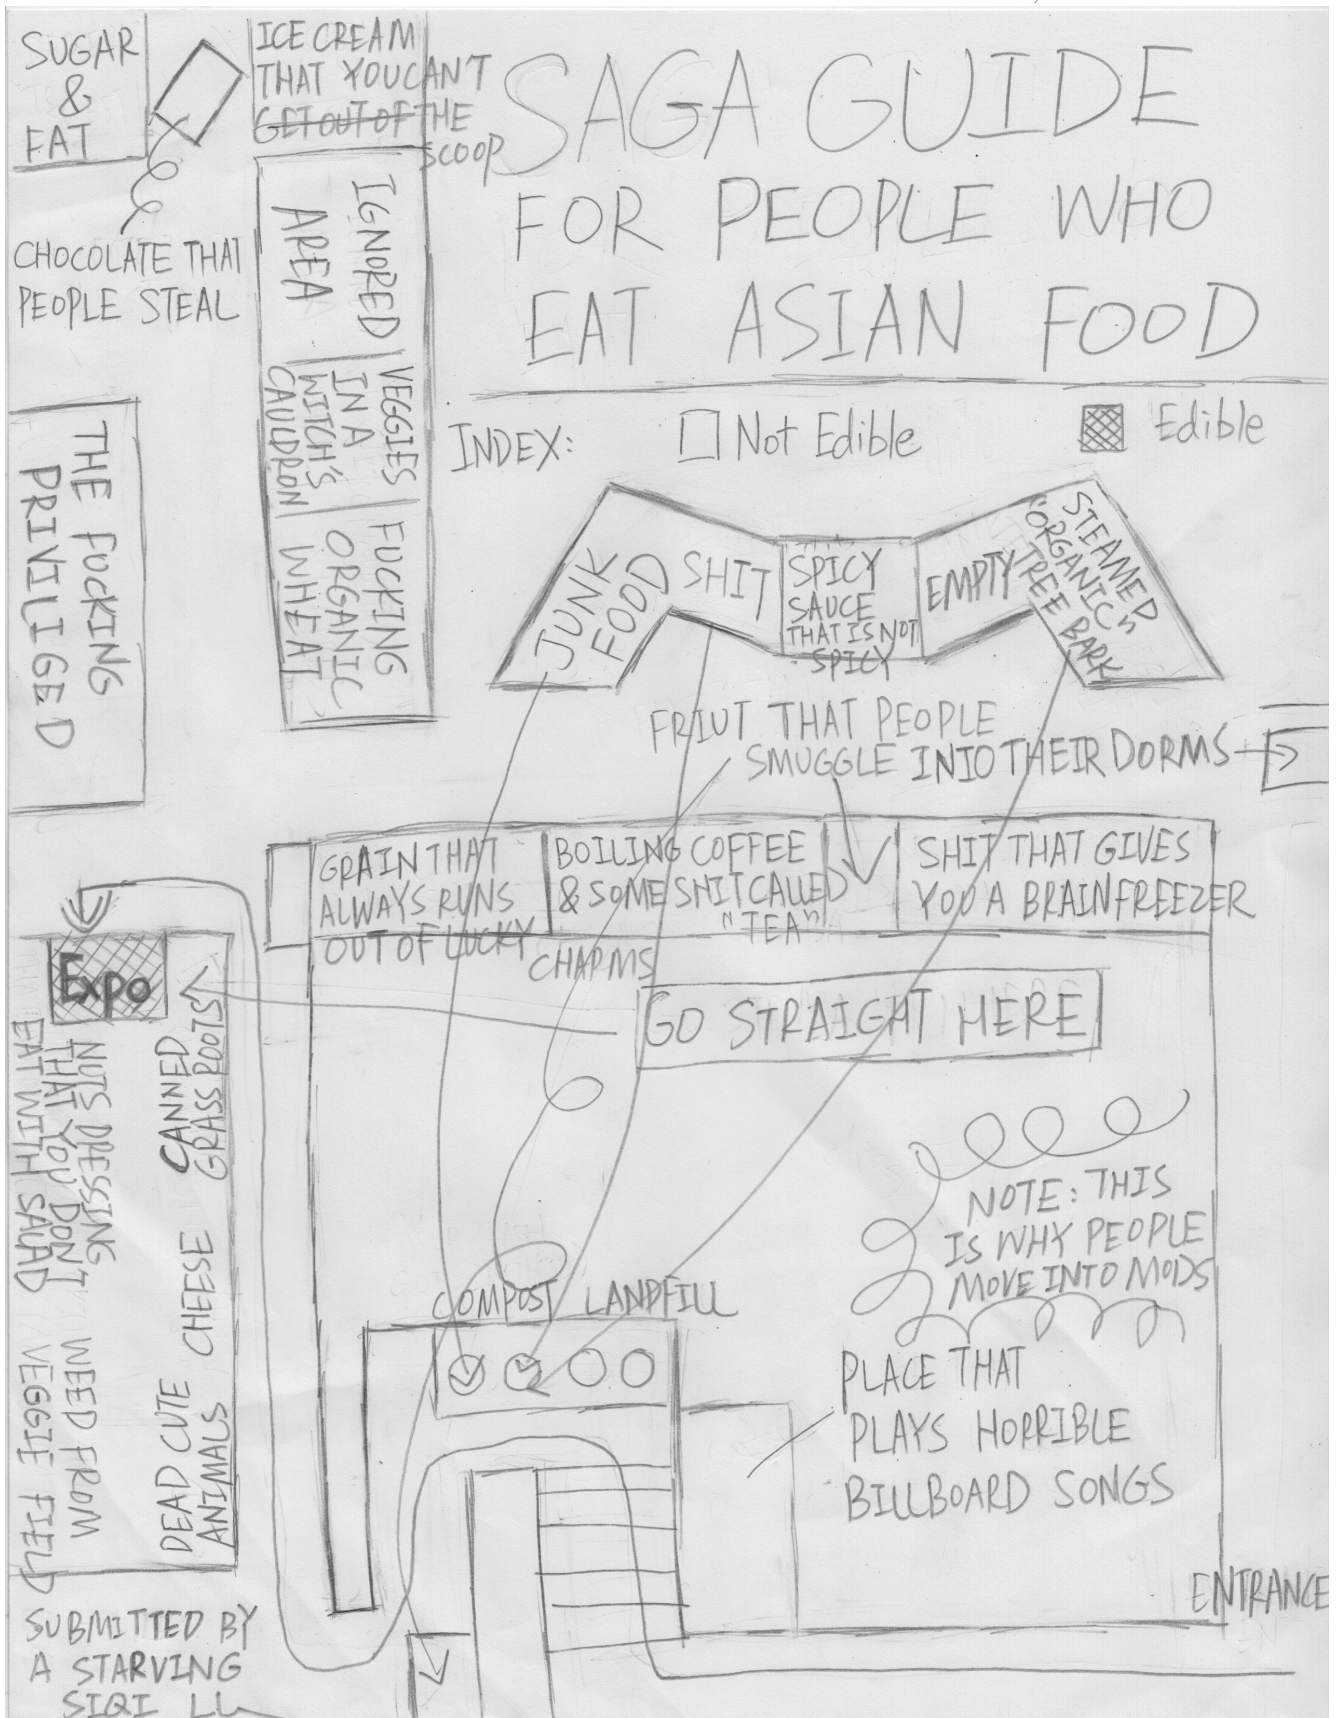 SUGAR
&
FAT
ICE CREAM
THAT YOU CANT
GET OUT OF THE
SCOOP
SAGA GUIDE
FOR PEOPLE WHO
EAT ASIAN FOOD
CHOCOLATE THAT
PEOPLE STEAL
IGNORED
AREA
VEGGIES
IN A
WITCH'S
CAULDRON
FUCKING
ORGANIC
WHEAT
THE FUCKING
PRIVILIGED
INDEX:
Not Edible
Edible
JUNK
FOOD
SHIT
SPICY
SAUCE
THAT IS NOT
SPICY
EMPTY
STEAMED
"ORGANIC"
TREE BARK
FRIUT THAT PEOPLE
SMUGGLE INTO THEIR DORMS
GRAIN THAT
ALWAYS RUNS
OUT OF LUCKY
CHARMS
BOILING COFFEE
& SOME SHIT CALLED
"TEA"
SHIT THAT GIVES
YOU A BRAINFREEZER
Expo
GO STRAIGHT HERE
CANNED
GRASS ROOTS
NUTS DRESSING
THAT YOU DON'T
EAT WITH SALAD
CHEESE
WEED FROM
VEGGIE FIELD
DEAD CUTE
ANIMALS
NOTE: THIS
IS WHY PEOPLE
MOVE INTO MODS
COMPOST LANDFILL
PLACE THAT
PLAYS HORRIBLE
BILLBOARD SONGS
ENTRANCE
SUBMITTED BY
A STARVING
SIQI